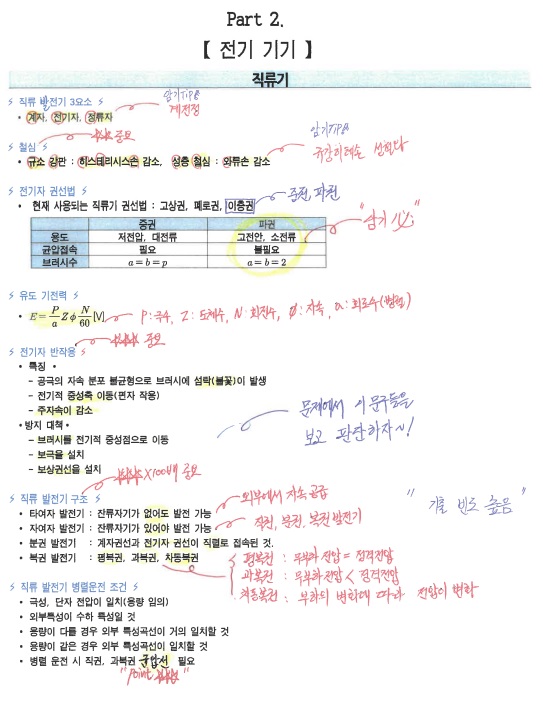 Part 2.
【 전기 기기 】
직류기
⚡ 직류 발전기 3요소 ⚡
암기Tip
• 계자, 전기자, 정류자
계전정
⚡ 철심 ⚡
중요
암기Tip
• 규소 강판 : 히스테리시스손 감소, 성층 철심 : 와류손 감소
규강히예손 성철와
⚡ 전기자 권선법 ⚡
• 현재 사용되는 직류기 권선법 : 고상권, 폐로권, 이층권
중권, 파권
중권 파권
용도 저전압, 대전류 고전안, 소전류
균압접속 필요 불필요
브러시수 a = b = p a = b = 2
"암기 必"
⚡ 유도 기전력 ⚡
• E = P/a Zϕ N/60 [V]
P: 극수, Z: 도체수, N: 회전수, Ø: 자속, a: 회로수(병렬)
중요
⚡ 전기자 반작용 ⚡
• 특징 •
- 공극의 자속 분포 불균형으로 브러시에 섬락(불꽃)이 발생
- 전기적 중성축 이동(편자 작용)
- 주자속이 감소
•방지 대책•
- 브러시를 전기적 중성점으로 이동
- 보극을 설치
- 보상권선을 설치
문제에서 이 문구들을
보고 판단하자~!
X100배 중요
⚡ 직류 발전기 구조 ⚡
외부에서 자속 공급
" 기출 빈도 높음 "
• 타여자 발전기 : 잔류자기가 없어도 발전 가능
• 자여자 발전기 : 잔류자기가 있어야 발전 가능
직권, 분권, 복권 발전기
• 분권 발전기 : 계자권선과 전기자 권선이 직렬로 접속된 것.
• 복권 발전기 : 평복권, 과복권, 차동복권
평복권 : 무부하 전압 = 정격전압
과복권 : 무부하전압 < 정격전압
차동복권 : 부하의 변화에 따라 전압이 변화
⚡ 직류 발전기 병렬운전 조건 ⚡
• 극성, 단자 전압이 일치(용량 임의)
• 외부특성이 수하 특성일 것
• 용량이 다를 경우 외부 특성곡선이 거의 일치할 것
• 용량이 같은 경우 외부 특성곡선이 일치할 것
• 병렬 운전 시 직권, 과복권 균압선 필요
"point"